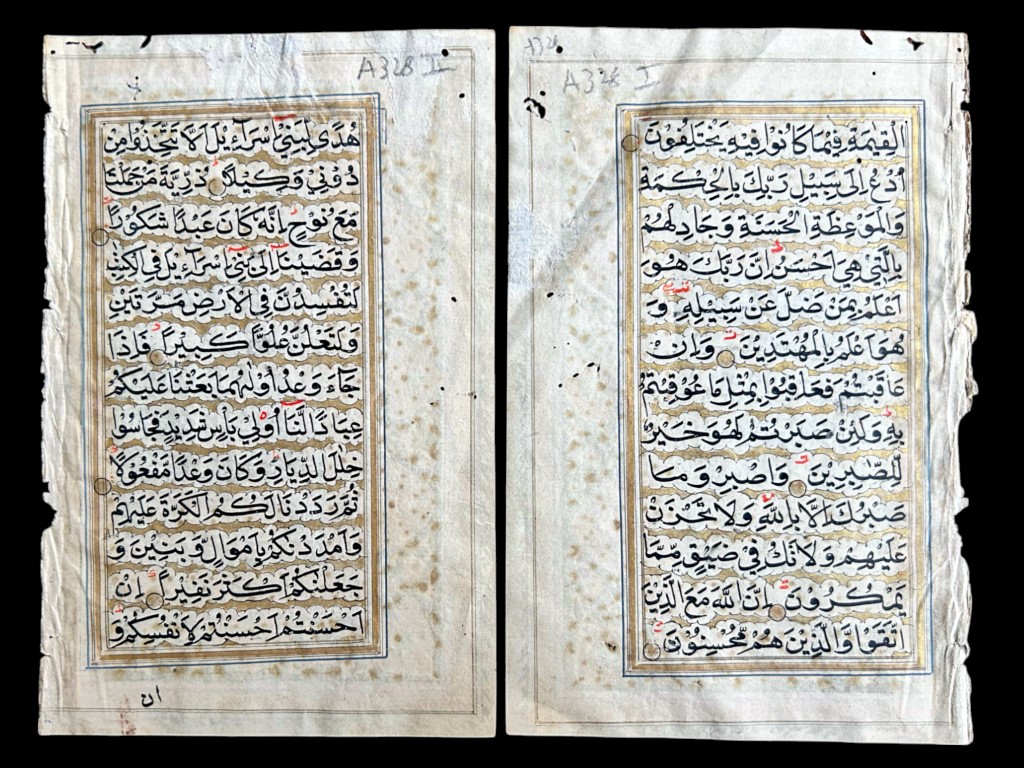 A328
A328 I
الْقِيٰمَةِ فِيْمَا كَانُوْا فِيْهِ يَخْتَلِفُوْنَ
اُدْعُ اِلٰى سَبِيْلِ رَبِّكَ بِالْحِكْمَةِ
وَالْمَوْعِظَةِ الْحَسَنَةِ وَجَادِلْهُمْ
بِالَّتِيْ هِيَ اَحْسَنُ اِنَّ رَبَّكَ هُوَ
اَعْلَمُ بِمَنْ ضَلَّ عَنْ سَبِيْلِهٖ وَ
هُوَ اَعْلَمُ بِالْمُهْتَدِيْنَ وَاِنْ
عَاقَبْتُمْ فَعَاقِبُوْا بِمِثْلِ مَا عُوْقِبْتُمْ
بِهٖ وَلَئِنْ صَبَرْتُمْ لَهُوَ خَيْرٌ
لِّلصّٰبِرِيْنَ وَاصْبِرْ وَمَا
صَبْرُكَ اِلَّا بِاللّٰهِ وَلَا تَحْزَنْ
عَلَيْهِمْ وَلَا تَكُ فِيْ ضَيْقٍ مِّمَّا
يَمْكُرُوْنَ اِنَّ اللّٰهَ مَعَ الَّذِيْنَ
اتَّقَوْا وَّالَّذِيْنَ هُمْ مُّحْسِنُوْنَ
A328 II
هُدًى لِّبَنِيْ اِسْرَآءِيْلَ اَلَّا تَتَّخِذُوْا مِنْ
دُوْنِيْ وَكِيْلًا ذُرِّيَّةَ مَنْ حَمَلْنَا
مَعَ نُوْحٍ اِنَّهٗ كَانَ عَبْدًا شَكُوْرًا
وَقَضَيْنَا اِلٰى بَنِيْ اِسْرَآءِيْلَ فِي الْكِتٰبِ
لَتُفْسِدُنَّ فِي الْاَرْضِ مَرَّتَيْنِ
وَلَتَعْلُنَّ عُلُوًّا كَبِيْرًا فَاِذَا
جَآءَ وَعْدُ اُوْلٰىهُمَا بَعَثْنَا عَلَيْكُمْ
عِبَادًا لَّنَا اُولِيْ بَأْسٍ شَدِيْدٍ فَجَاسُوْا
خِلٰلَ الدِّيَارِ وَكَانَ وَعْدًا مَّفْعُوْلًا
ثُمَّ رَدَدْنَا لَكُمُ الْكَرَّةَ عَلَيْهِمْ
وَاَمْدَدْنٰكُمْ بِاَمْوَالٍ وَّبَنِيْنَ وَ
جَعَلْنٰكُمْ اَكْثَرَ نَفِيْرًا اِنْ
اَحْسَنْتُمْ اَحْسَنْتُمْ لِاَنْفُسِكُمْ وَ
ان